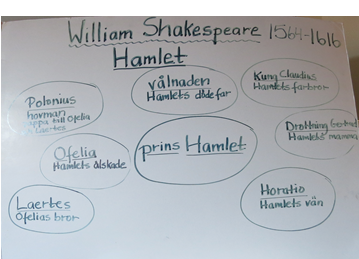 William Shakespeare 1564-1616
Hamlet
Polonius
hovman
pappa till Ofelia
& Laertes
vålnaden
Hamlets döde far
Kung Claudius
Hamlets farbror
Ofelia
Hamlets älskade
prins Hamlet
Drottning Gertrud
Hamlets mamma
Laertes
Ofelias bror
Horatio
Hamlets vän